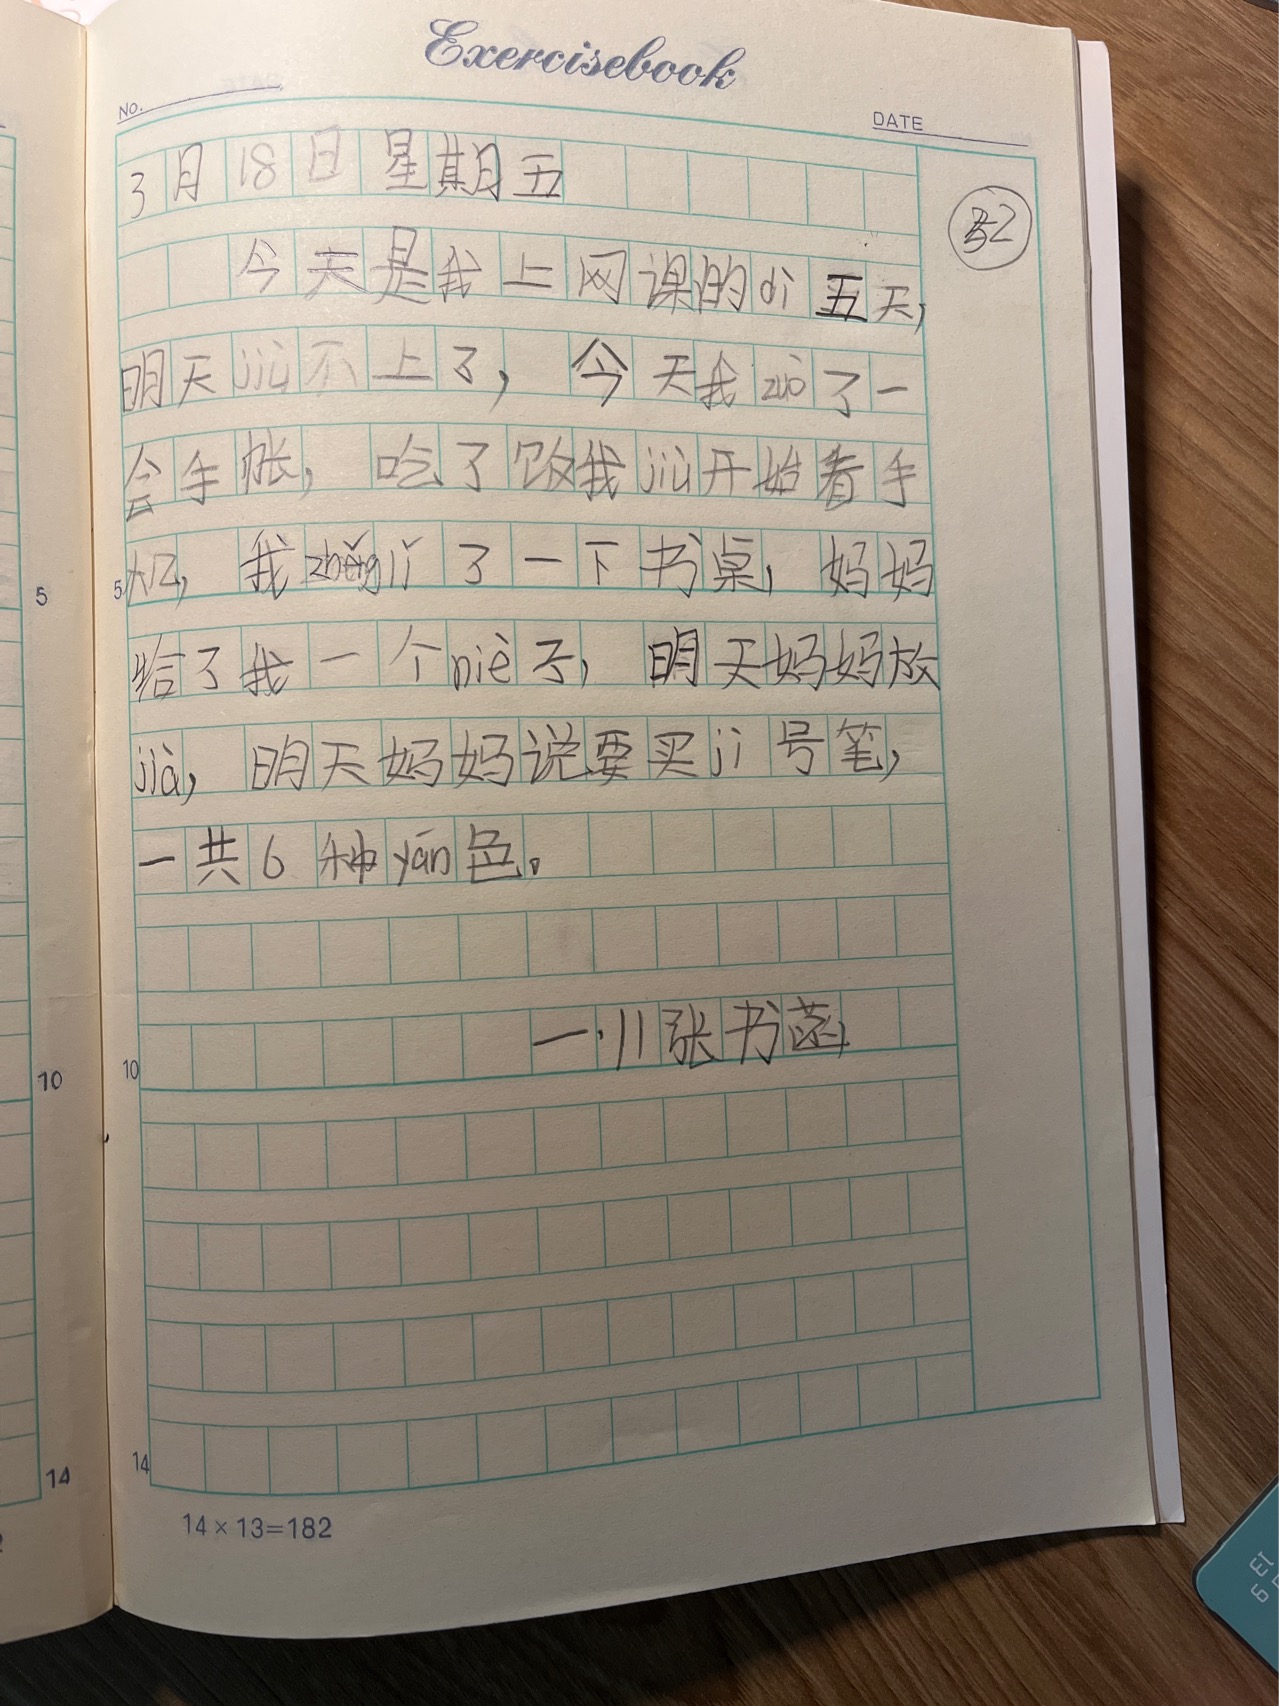 Exercisebook
NO.
DATE
3月18日星期五
52
今天是我上网课的dì五天,
明天jiù不上了,今天我zuò了一
会手帐,吃了饭我jiù开始看手
机,我zhěnglǐ了一下书桌,妈妈
给了我一个niè子,明天妈妈放
jià,明天妈妈说要买jì号笔,
一共6种yán色。
一·川张书菡
5
5
10
10
14
14
14×13=182